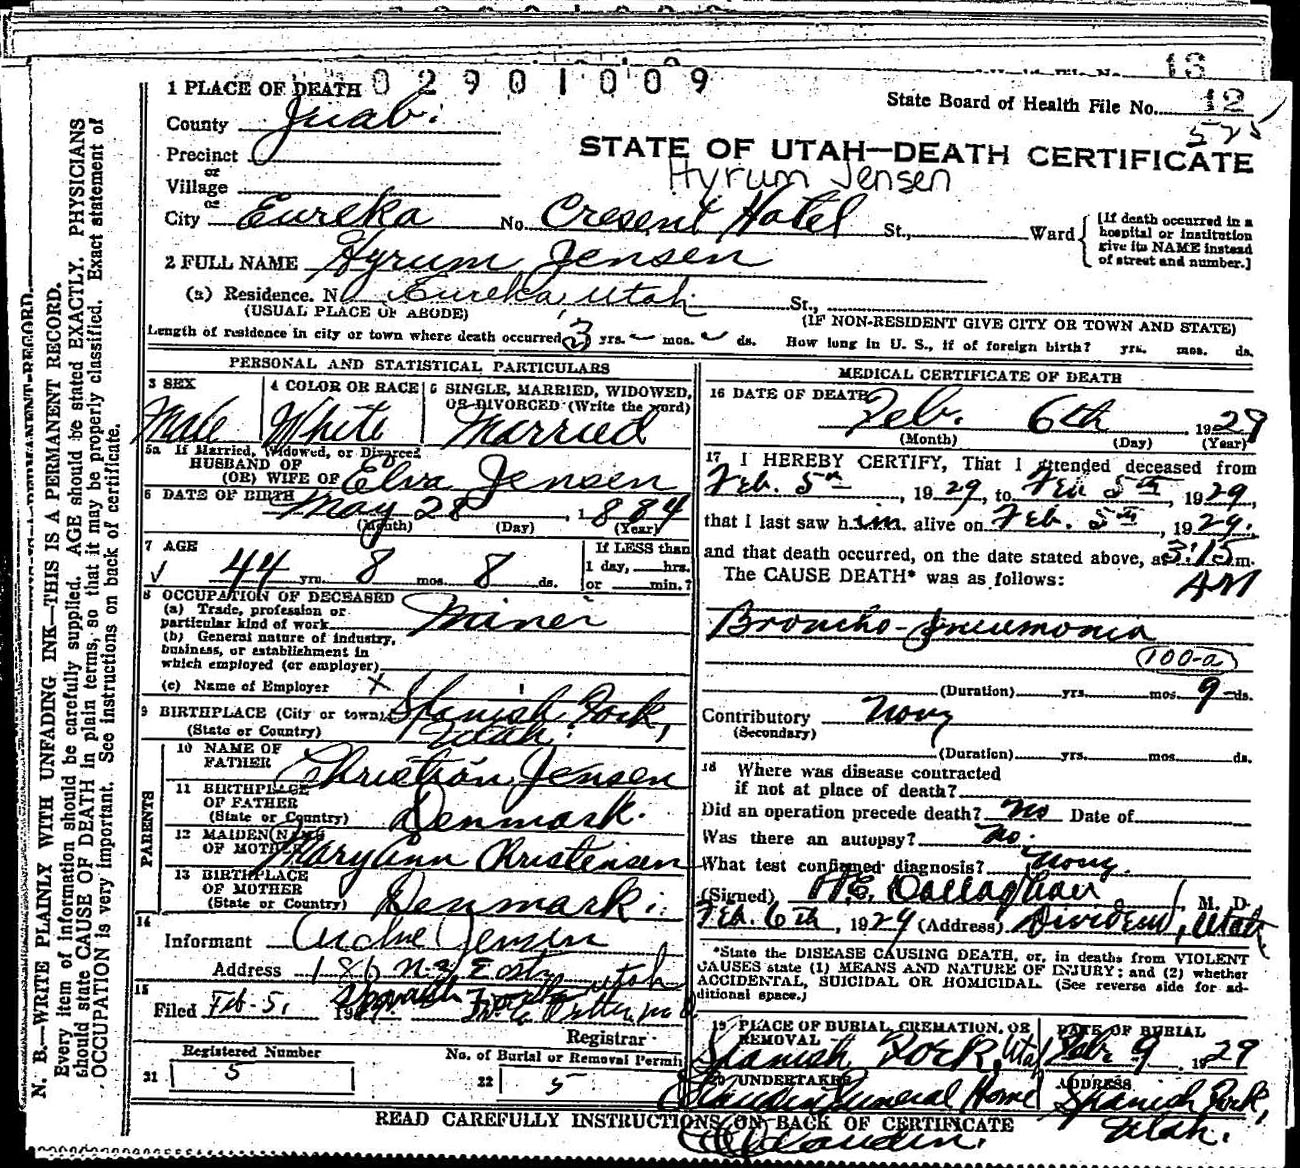 02901009
13
1 PLACE OF DEATH
State Board of Health File No. 12
575
County Juab.
STATE OF UTAH—DEATH CERTIFICATE
Precinct
Hyrum Jensen
or
Village
or
City Eureka No. Cresent Hotel St., Ward
[If death occurred in a hospital or institution give its NAME instead of street and number.]
2 FULL NAME Hyrum Jensen
(a) Residence. No. Eureka, Utah St.,
(USUAL PLACE OF ABODE) (IF NON-RESIDENT GIVE CITY OR TOWN AND STATE)
Length of residence in city or town where death occurred 3 yrs. – mos. – ds. How long in U. S., if of foreign birth? yrs. mos. ds.
PERSONAL AND STATISTICAL PARTICULARS
3 SEX Male
4 COLOR OR RACE White
5 SINGLE, MARRIED, WIDOWED, OR DIVORCED (Write the word) Married
5a If Married, Widowed, or Divorced
HUSBAND OF
(OR) WIFE OF Elva Jensen
6 DATE OF BIRTH May 28, 1884
(Month) (Day) (Year)
7 AGE 44 yrs. 8 mos. 8 ds.
If LESS than
1 day, hrs.
or min.?
8 OCCUPATION OF DECEASED
(a) Trade, profession or
particular kind of work Miner
(b) General nature of industry,
business, or establishment in
which employed (or employer)
(c) Name of Employer X
9 BIRTHPLACE (City or town) Spanish Fork,
(State or Country) Utah.
PARENTS
10 NAME OF FATHER Christian Jensen
11 BIRTHPLACE OF FATHER (State or Country) Denmark.
12 MAIDEN NAME OF MOTHER Mary Ann Christensen
13 BIRTHPLACE OF MOTHER (State or Country) Denmark.
14
Informant Jensen
Address 186 N. 3 East
Spanish Fork Utah
15
Filed Feb-5, 19
Registrar
Registered Number
21 5
No. of Burial or Removal Permit
22 5
MEDICAL CERTIFICATE OF DEATH
16 DATE OF DEATH Feb. 6th, 1929
(Month) (Day) (Year)
17 I HEREBY CERTIFY, That I attended deceased from
Feb. 5th, 1929, to Feb 5th 1929,
that I last saw him alive on Feb. 5th 1929.
and that death occurred, on the date stated above, at 3:15 m.
AM
The CAUSE DEATH* was as follows:
Broncho-Pneumonia
100-a
(Duration) yrs. mos. 9 ds.
Contributory None
(Secondary)
(Duration) yrs. mos. ds.
18 Where was disease contracted
if not at place of death?
Did an operation precede death? No Date of
Was there an autopsy? No.
What test confirmed diagnosis? None.
(Signed) Callaghan, M. D.
Feb. 6th, 1929 (Address) Dividend, Utah
*State the DISEASE CAUSING DEATH, or, in deaths from VIOLENT
CAUSES state (1) MEANS AND NATURE OF INJURY; and (2) whether
ACCIDENTAL, SUICIDAL OR HOMICIDAL. (See reverse side for ad-
ditional space.)
19 PLACE OF BURIAL, CREMATION, OR REMOVAL Spanish Fork, Utah
DATE OF BURIAL Feb. 9 1929
20 UNDERTAKER Claudin Funeral Home
ADDRESS Spanish Fork, Utah.
Claudin.
READ CAREFULLY INSTRUCTIONS ON BACK OF CERTIFICATE
N. B.—WRITE PLAINLY WITH UNFADING INK—THIS IS A PERMANENT RECORD.
Every item of information should be carefully supplied. AGE should be stated EXACTLY. PHYSICIANS
should state CAUSE OF DEATH in plain terms, so that it may be properly classified. Exact statement of
OCCUPATION is very important. See instructions on back of certificate.